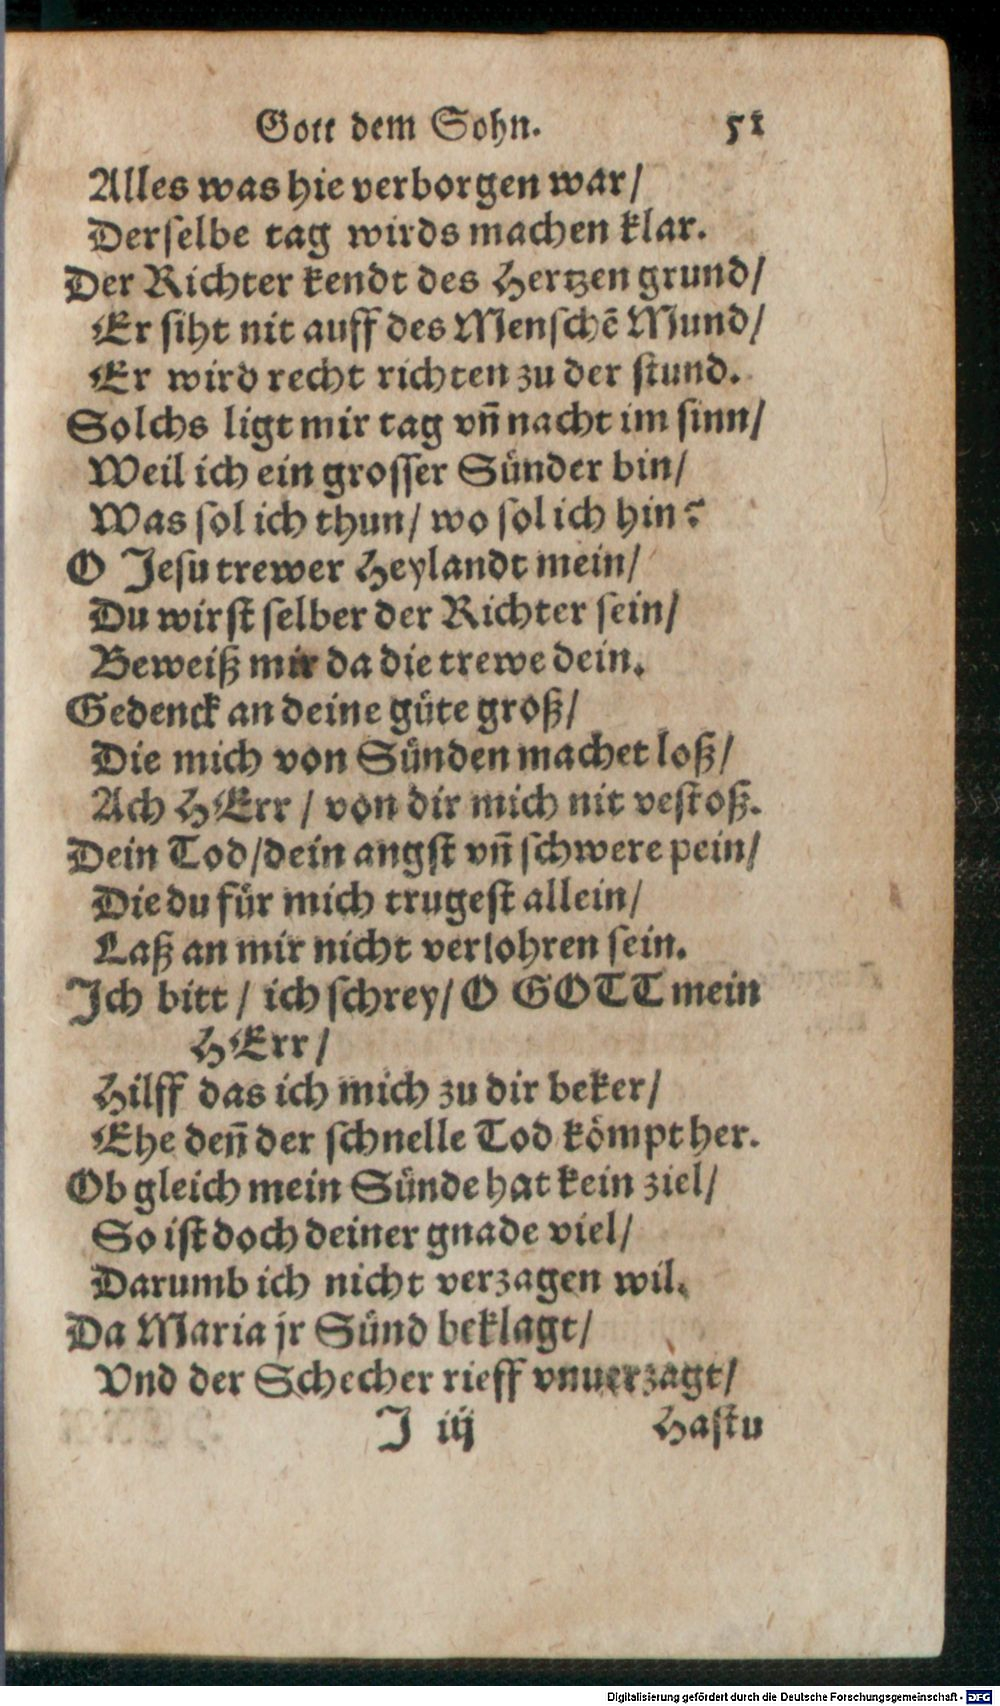 Gott dem Sohn. 51
Alles was hie verborgen war/
Derselbe tag wirds machen klar.
Der Richter kendt des Hertzen grund/
Er siht nit auff des Menschẽ Mund/
Er wird recht richten zu der stund.
Solchs ligt mir tag vñ nacht im sinn/
Weil ich ein grosser Sünder bin/
Was sol ich thun/ wo sol ich hin?
O Jesu trewer Heylandt mein/
Du wirst selber der Richter sein/
Beweiß mir da die trewe dein.
Gedenck an deine güte groß/
Die mich von Sünden machet loß/
Ach HErr / von dir mich nit vestoß.
Dein Tod/dein angst vñ schwere pein/
Die du für mich trugest allein/
Laß an mir nicht verlohren sein.
Ich bitt / ich schrey/ O GOTT mein
HErr /
Hilff das ich mich zu dir beker/
Ehe deñ der schnelle Tod kömpt her.
Ob gleich mein Sünde hat kein ziel/
So ist doch deiner gnade viel/
Darumb ich nicht verzagen wil.
Da Maria jr Sünd beklagt/
Vnd der Schecher rieff vnuerzagt/
J iij Hastu
Digitalisierung gefördert durch die Deutsche Forschungsgemeinschaft - DFG